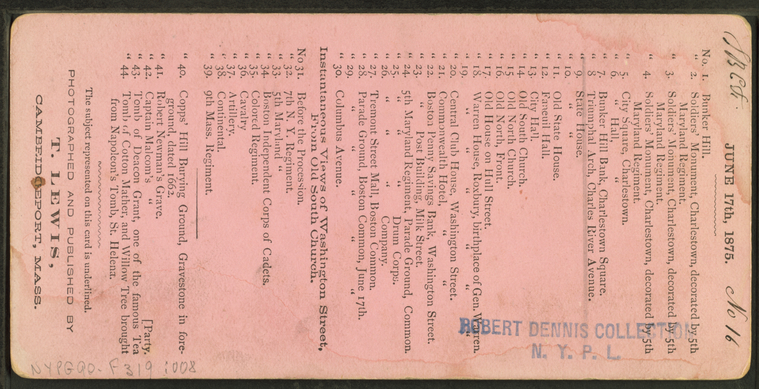 JUNE 17th, 1875. No 16
No. 1. Bunker Hill.
" 2. Soldiers' Monument, Charlestown, decorated by 5th
Maryland Regiment.
" 3. Soldiers' Monument, Charlestown, decorated by 5th
Maryland Regiment.
" 4. Soldiers' Monument, Charlestown, decorated by 5th
Maryland Regiment.
" 5. City Square, Charlestown.
" 6. " Hall, "
" 7. Bunker Hill Bank, Charlestown Square.
" 8 Triumphal Arch, Charles River Avenue.
" 9. State House.
" 10. " "
" 11. Old State House.
" 12. Faneuil Hall.
" 13. City Hall.
" 14. Old South Church.
" 15 Old North Church.
" 16. Old North, Front.
" 17. Old House on Hull Street.
" 18. Warren House, Roxbury, birthplace of Gen. Warren.
" 19. " " " " " "
" 20. Central Club House, Washington Street.
" 21. Commonwealth Hotel, " "
" 22. Boston Penny Savings Bank, Washington Street.
" 23. " Post Building, Milk Street.
" 24. 5th Maryland Regiment, Parade Ground, Common.
" 25. " " " Drum Corps.
" 26. " " " Company.
" 27. Tremont Street Mall, Boston Common.
" 28. Parade Ground, Boston Common, June 17th.
" 29. " " " " "
" 30. Columbus Avenue.
Instantaneous Views of Washington Street,
From Old South Church.
No 31. Before the Procession.
" 32. 7th N. Y. Regiment.
" 33. 5th Maryland "
" 34. Boston Independent Corps of Cadets.
" 35. Colored Regiment.
" 36. Cavalry
" 37. Artillery.
" 38. Continental.
" 39. 9th Mass. Regiment.
" 40. Copps' Hill Burying Ground, Gravestone in fore-
ground, dated 1662.
" 41. Robert Newman's Grave.
" 42. Captain Malcom's " [Party.
" 43. Tomb of Deacon Grant, one of the famous Tea
" 44. Tomb of Cotton Mather, and Willow Tree brought
from Napoleon's Tomb, St. Helena.
The subject represented on this card is underlined.
PHOTOGRAPHED AND PUBLISHED BY
T. LEWIS,
CAMBRIDGEPORT, MASS.
ROBERT DENNIS COLLECTION
N. Y. P. L.
NYPG90-F319.1008